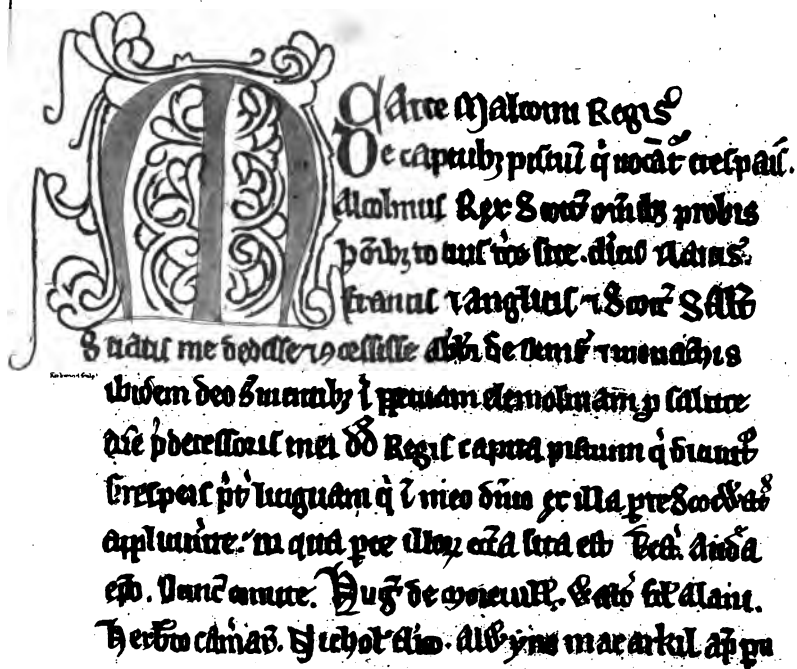 Carte Malcomi Regis
De capitibȝ pisciū q̇ uocāt᷑ crespais.
Malcolmus Rex Scott᷑ om̄ibȝ probis
hōībȝ tocius tr̄e sue. cl̄icis ⁊ laicis.
francis ⁊ anglicis ⁊ Scott᷑ Sal̄t
Sciatis me dedisse ⁊ ꝯcessisse abb̄i de dunf᷑ ⁊ monachis
ibidem deo s̄uientibȝ ī ꝑpetuam elemosinam ꝓ salute
aīe p̄decessoris mei dd̄ Regis capita piscium q̇ dicunt᷑
crespeis p̄t᷑ linguam q̇ ī meo dn̄io ex illa ꝑte Scottwat᷑
applicu᷑int. in qua ꝑte illoꝝ ecc̄a sita est Test᷑. Andr᷑a
ep̄o. Dunc̄ comite. Hug᷑ de moreuill᷑. Walt᷑o fil᷑ alani.
Herb᷑to cam̄ar᷑. Nichol᷑ cl̄ico. Alwyno mac arkil ap̄